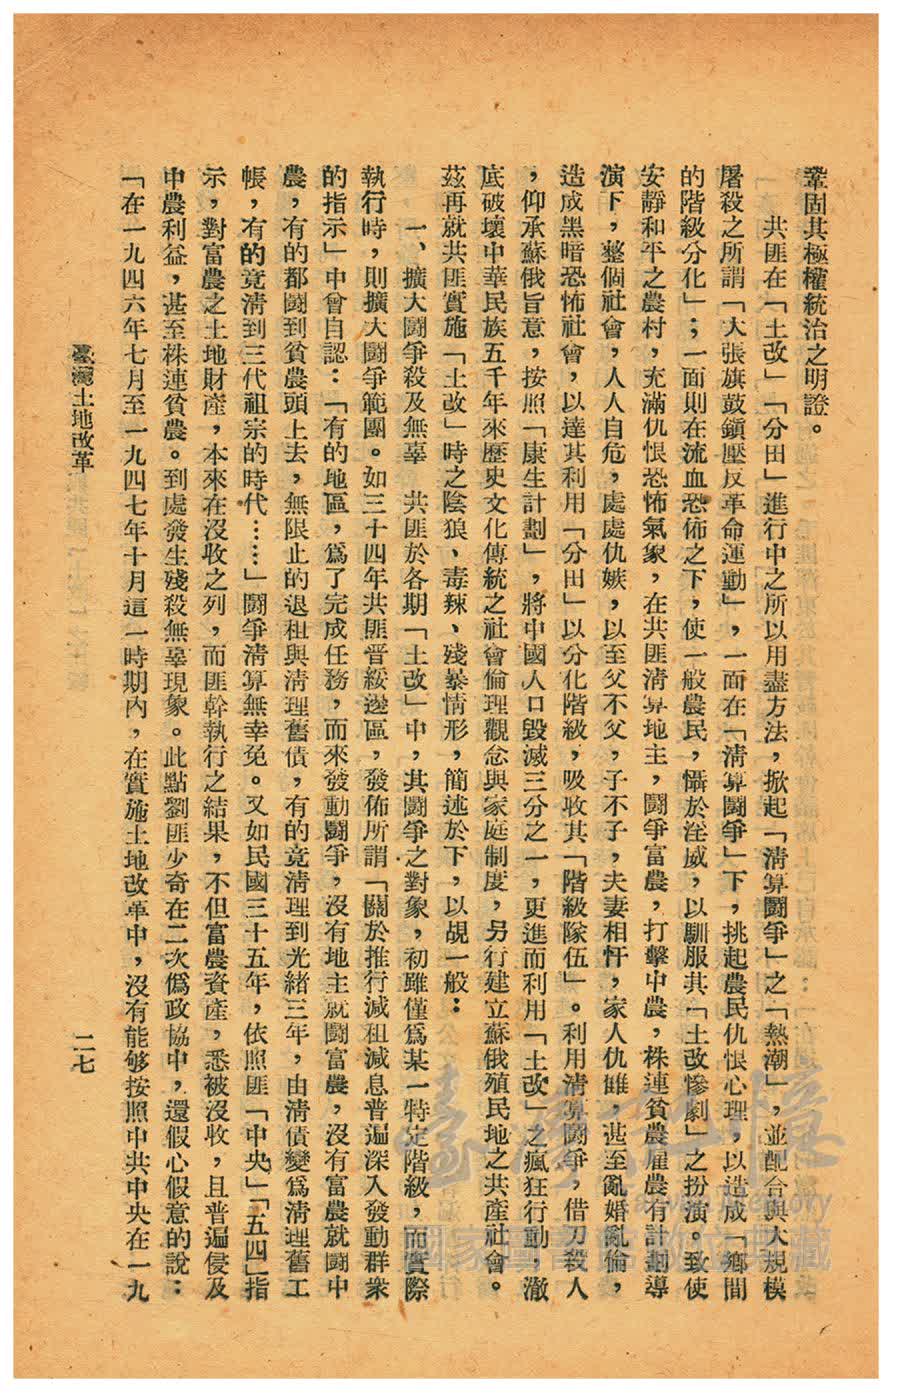 鞏固其極權統治之明證。
共匪在「土改」「分田」進行中之所以用盡方法，掀起「淸算鬪爭」之「熱潮」，並配合與大規模
屠殺之所謂「大張旗鼓鎭壓反革命運動」，一面在「淸算鬪爭」下，挑起農民仇恨心理，以造成「鄉間
的階級分化」；一面則在流血恐佈之下，使一般農民，懾於淫威，以馴服其「土改慘劇」之扮演。致使
安靜和平之農村，充滿仇恨恐怖氣象，在共匪淸算地主，鬪爭富農，打擊中農，株連貧農雇農有計劃導
演下，整個社會，人人自危，處處仇嫉，以至父不父，子不子，夫妻相忤，家人仇雠，甚至亂婚亂倫，
造成黑暗恐怖社會，以達其利用「分田」以分化階級，吸收其「階級隊伍」。利用淸算鬪爭，借刀殺人
，仰承蘇俄旨意，按照「康生計劃」，將中國人口毀滅三分之一，更進而利用「土改」之瘋狂行動，澈
底破壞中華民族五千年來歷史文化傳統之社會倫理觀念與家庭制度，另行建立蘇俄殖民地之共產社會。
茲再就共匪實施「土改」時之陰狼、毒辣、殘暴情形，簡述於下，以覘一般：
一、擴大鬪爭殺及無辜　共匪於各期「土改」中，其鬪爭之對象，初雖僅爲某一特定階級，而實際
執行時，則擴大鬪爭範圍。如三十四年共匪晉綏邊區，發佈所謂「關於推行減租減息普遍深入發動群衆
的指示」中曾自認：「有的地區，爲了完成任務，而來發動鬪爭，沒有地主就鬪富農，沒有富農就鬪中
農，有的都鬪到貧農頭上去，無限止的退租與淸理舊債，有的竟淸理到光緒三年，由淸債變爲淸理舊工
帳，有的竟淸到三代祖宗的時代……」鬪爭淸算無幸免。又如民國三十五年，依照匪「中央」「五四」指
示，對富農之土地財產，本來在沒收之列，而匪幹執行之結果，不但富農資產，悉被沒收，且普遍侵及
中農利益，甚至株連貧農。到處發生殘殺無辜現象。此點劉匪少奇在二次僞政協中，還假心假意的說：
「在一九四六年七月至一九四七年十月這一時期內，在實施土地改革中，沒有能够按照中共中央在一九
臺灣土地改革
二七
臺灣記憶
Taiwan Memory
國家圖書館數位典藏